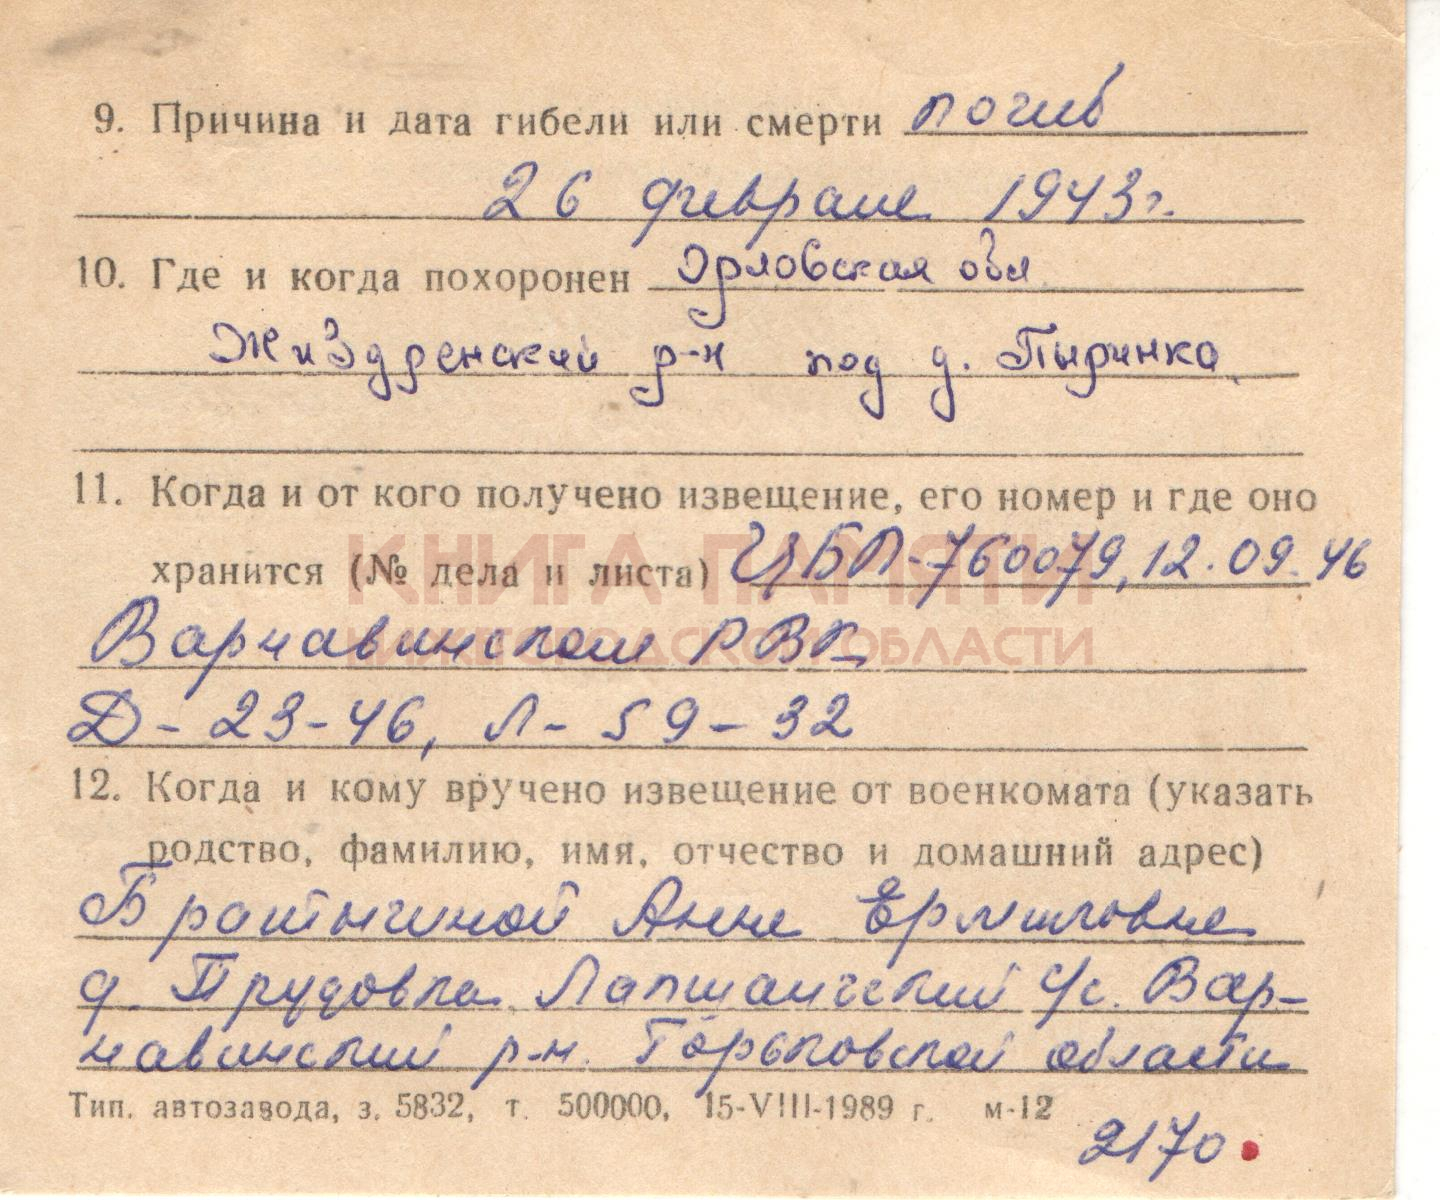 9. Причина и дата гибели или смерти погиб
26 феврале 1943 г.
10. Где и когда похоронен Орловская обл
Жиздренский р-н под д. Пыринка
11. Когда и от кого получено извещение, его номер и где оно
хранится (№ дела и листа) ЦБП-760079, 12.09.46
КНИГА ПАМЯТИ
НИЖЕГОРОДСКОЙ ОБЛАСТИ
Варнавинском РВК
Д-23-46, Л-59-32
12. Когда и кому вручено извещение от военкомата (указать
родство, фамилию, имя, отчество и домашний адрес)
Анне Ермиловне
д. Трудовка Лапшангский с/с. Вар-
навинский р-н. Горьковской области
Тип. автозавода, з. 5832, т. 500000, 15-VIII-1989 г. м-12
2170